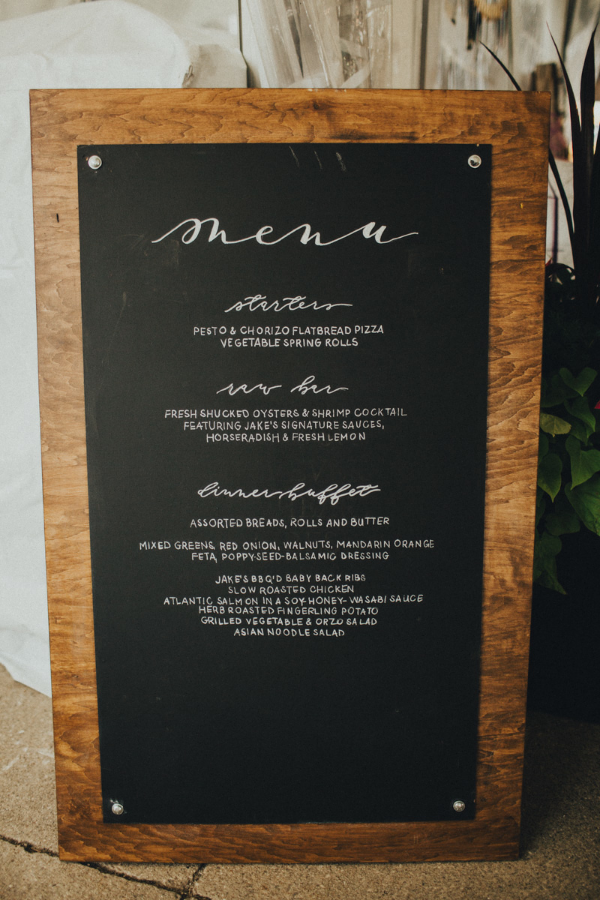 menu
starters
PESTO & CHORIZO FLATBREAD PIZZA
VEGETABLE SPRING ROLLS
raw bar
FRESH SHUCKED OYSTERS & SHRIMP COCKTAIL
FEATURING JAKE'S SIGNATURE SAUCES,
HORSERADISH & FRESH LEMON
dinner buffet
ASSORTED BREADS, ROLLS AND BUTTER
MIXED GREENS, RED ONION, WALNUTS, MANDARIN ORANGE
FETA, POPPY-SEED-BALSAMIC DRESSING
JAKE'S BBQ'D BABY BACK RIBS
SLOW ROASTED CHICKEN
ATLANTIC SALMON IN A SOY-HONEY-WASABI SAUCE
HERB ROASTED FINGERLING POTATO
GRILLED VEGETABLE & ORZO SALAD
ASIAN NOODLE SALAD